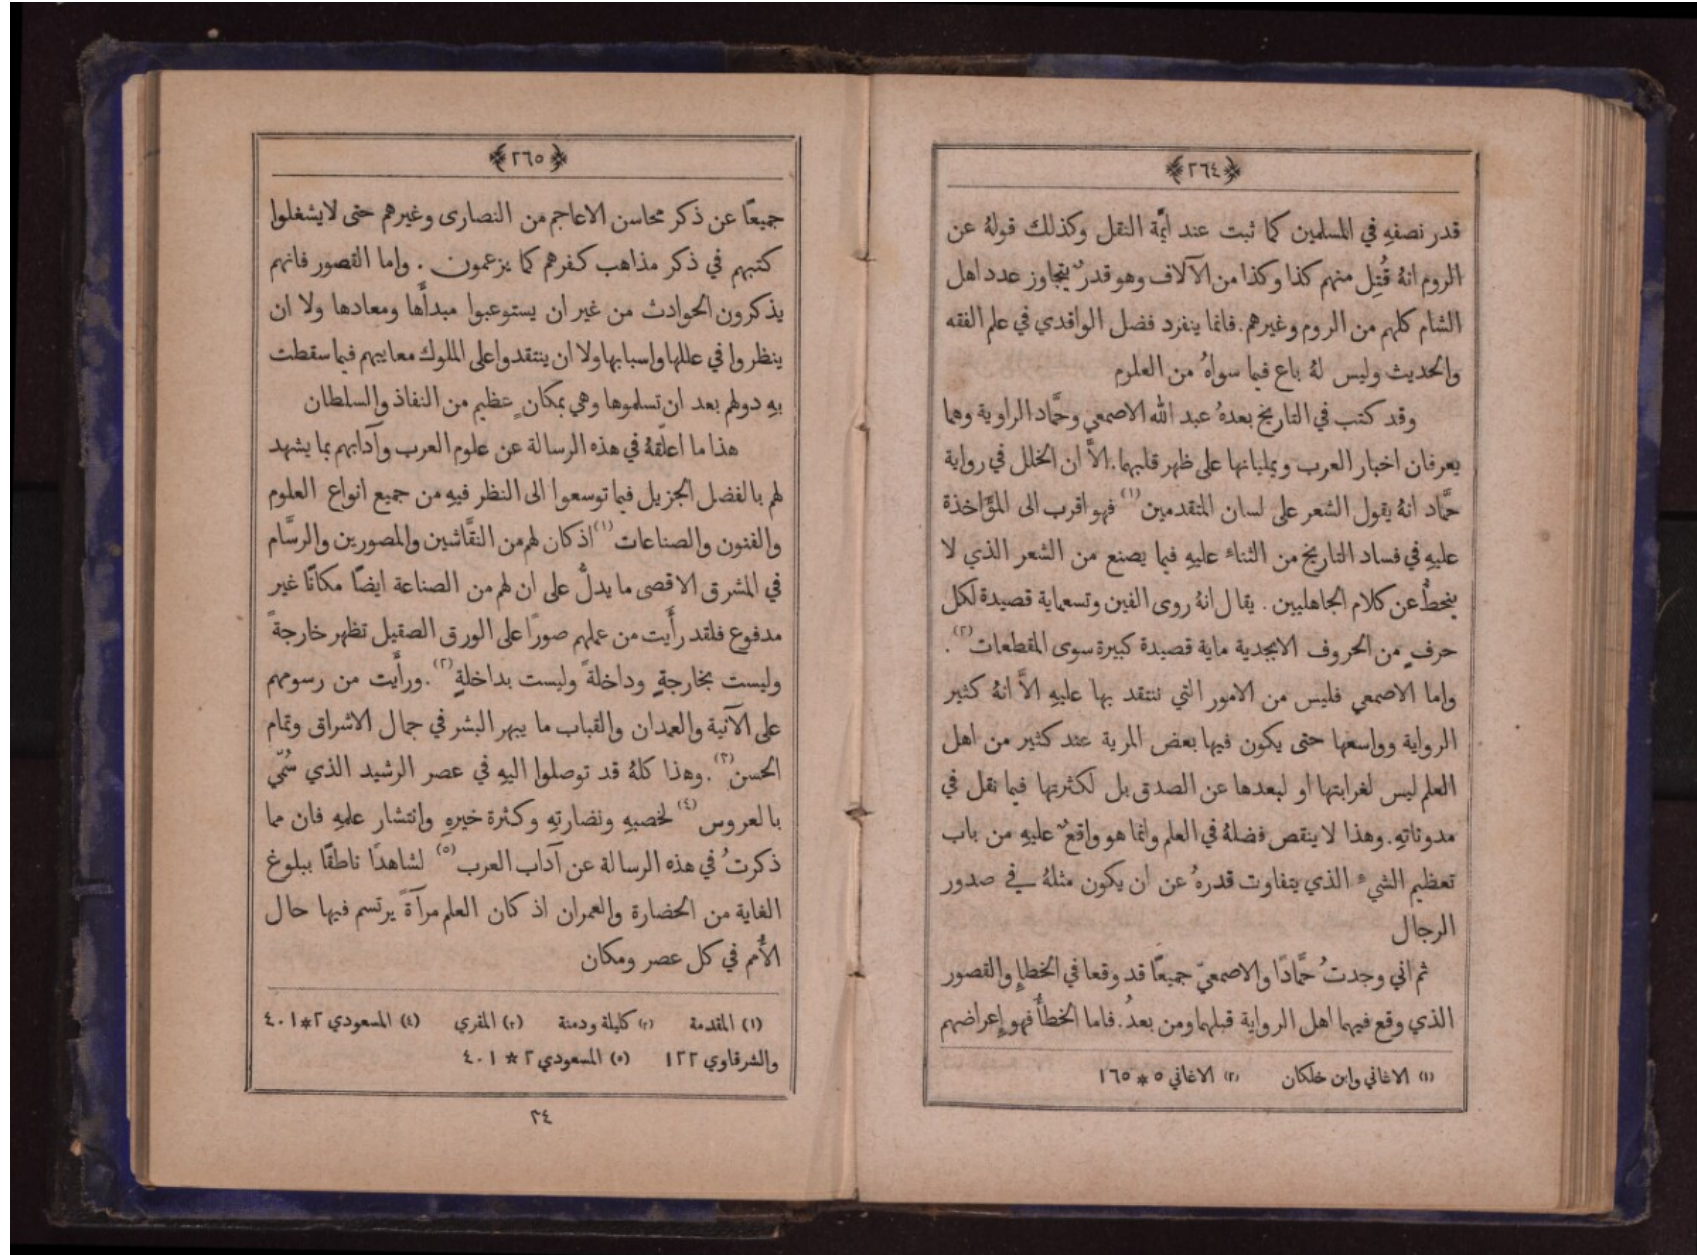 ﴿٢٦٤﴾
قدر نصفهِ في المسلمين كما ثبت عند ايَّمة النقل وكذلك قولهُ عن
الروم انهُ قُتِل منهم كذا وكذا من الآلاف وهو قدرٌ يتجاوز عدد اهل
الشام كلهم من الروم وغيرهم. فانما ينفرد فضل الواقدي في علم الفقه
والحديث وليس لهُ باع فيما سواهُ من العلوم
وقد كتب في التاريخ بعدهُ عبد الله الاصمعي وحمَّاد الراوية وهما
يعرفان اخبار العرب ويمليانها على ظهر قلبهما. الاَّ ان الخلل في رواية
حمَّاد انهُ يقول الشعر على لسان المتقدمين (١) فهو اقرب الى المؤَّاخذة
عليهِ في فساد التاريخ من الثناء عليهِ فيما يصنع من الشعر الذي لا
ينحطُّ عن كلام الجاهليين . يقال انهُ روى الفين وتسعماية قصيدة لكل
حرفٍ من الحروف الابجدية ماية قصيدة كبيرة سوى المقطعات (٢) .
واما الاصمعي فليس من الامور التي ننتقد بها عليهِ الاَّ انهُ كثير
الرواية وواسعها حتى يكون فيها بعض المرية عند كثير من اهل
العلم ليس لغرابتها او لبعدها عن الصدق بل لكثرتها فيما نقل في
مدوناتهِ. وهذا لا ينقص فضلهُ في العلم وانما هو واقعٌ عليهِ من باب
تعظيم الشيء الذي يتفاوت قدرهُ عن ان يكون مثلهُ في صدور
الرجال
ثم اني وجدتُ حمَّادًا والاصمعيّ جميعًا قد وقعا في الخطإِ والقصور
الذي وقع فيهما اهل الرواية قبلهما ومن بعدُ. فاما الخطأُ فهو إِعراضهم
(١) الاغاني وابن خلكان (٢) الاغاني ٥ * ١٦٥
﴿٢٦٥﴾
جميعًا عن ذكر محاسن الاعاجم من النصارى وغيرهم حتى لا يشغلوا
كتبهم في ذكر مذاهب كفرهم كما يزعمون . واما القصور فانهم
يذكرون الحوادث من غير ان يستوعبوا مبدأَها ومعادها ولا ان
ينظروا في عللها واسبابها ولا ان ينتقدوا على الملوك معايبهم فيما سقطت
بهِ دولهم بعد ان تسلموها وهي بمكانٍ عظيم من النفاذ والسلطان
هذا ما اعلّقهُ في هذه الرسالة عن علوم العرب وآدابهم بما يشهد
لهم بالفضل الجزيل فيما توسعوا الى النظر فيهِ من جميع انواع العلوم
والفنون والصناعات (١) اذ كان لهم من النقَّاشين والمصورين والرسَّام
في المشرق الاقصى ما يدلُّ على ان لهم من الصناعة ايضًا مكانًا غير
مدفوع فلقد رأَيت من عملهم صورًا على الورق الصقيل تظهر خارجةً
وليست بخارجةٍ وداخلةً وليست بداخلةٍ (٢) . ورأَيت من رسومهم
على الآنية والعمدان والقباب ما يبهر البشر في جمال الاشراق وتمام
الحسن (٣) . وهذا كلهُ قد توصلوا اليهِ في عصر الرشيد الذي سُمّي
بالعروس (٤) لخصبهِ ونضارتهِ وكثرة خيرهِ وانتشار علمهِ فان مما
ذكرتُ في هذه الرسالة عن آداب العرب (٥) لشاهدًا ناطقًا ببلوغ
الغاية من الحضارة والعمران اذ كان العلم مرآةً يرتسم فيها حال
الأُمم في كل عصر ومكان
(١) المقدمة (٢) كليلة ودمنة (٣) المقري (٤) المسعودي ٢ * ٤٠١
والشرقاوي ١٢٢ (٥) المسعودي ٢ * ٤٠١
٣٤